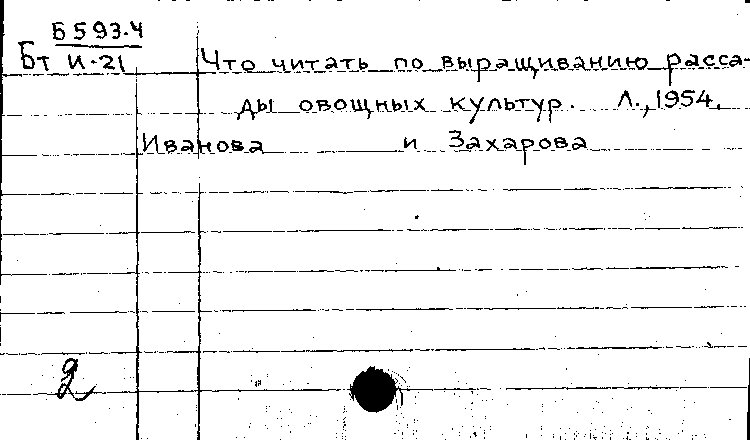 Б593.4
Бт И-21 Что читать по выращиванию расса-
ды овощных культур. Л., 1954.
Иванова и Захарова
2